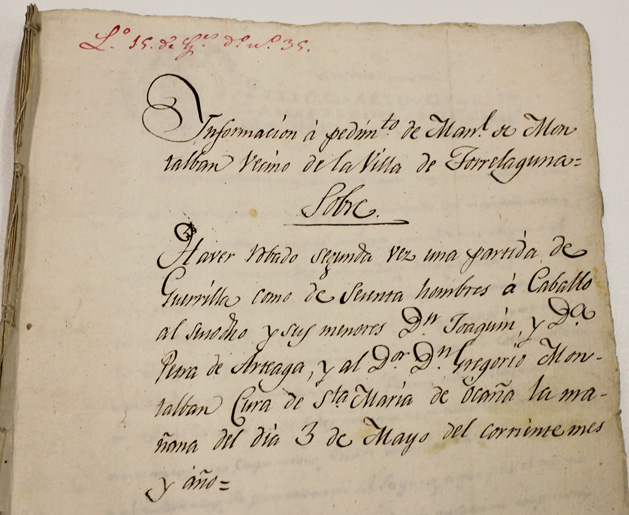 L.º 15. de d.º n.º 35.
Informacion à pedim.to de Man.l de Mon
talban Vecino de la Villa de Torrelaguna=
Sobre.
Haver robado segunda vez una partida de
Guerrilla como de sesenta hombres à Caballo
al susodho y sus menores D.n Joaquin, y D.a
Petra de Arteaga, y al D.or D.n Gregorio Mon-
talban Cura de S.ta Maria de Ocaña la ma-
ñana del dia 3 de Mayo del corriente mes
y año=